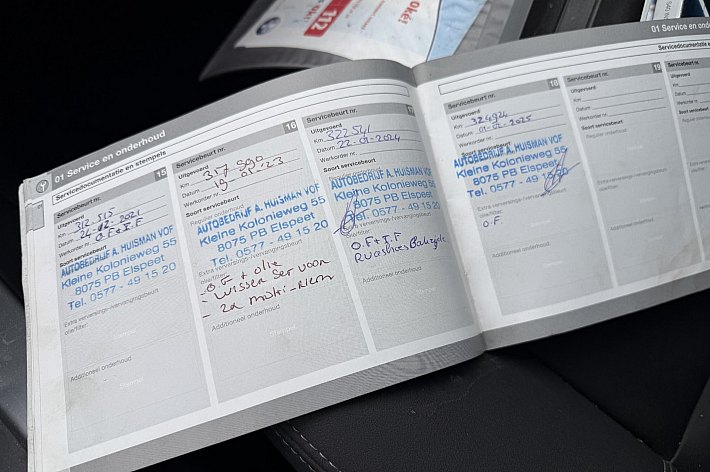 Oké!
112
01 Service en onderhoud
Servicedocumentatie en stempels
Servicebeurt nr. 15
Uitgevoerd
Km 312.515
Datum 24-02-2021
Werkorder nr.
Soort servicebeurt
AUTOBEDRIJF A. HUISMAN VOF
Kleine Kolonieweg 55
8075 PB Elspeet
Tel. 0577 - 49 15 20
Extra verversings-/vervangingsbeurt
olie/filter:
Stempel
Additioneel onderhoud:
Stempel
Servicebeurt nr. 16
Uitgevoerd
Km 317
Datum 19
Werkorder nr.
Soort servicebeurt
Regulier onderhoud:
AUTOBEDRIJF A. HUISMAN VOF
Kleine Kolonieweg 55
8075 PB Elspeet
Tel. 0577 - 49 15 20
Extra verversings-/vervangingsbeurt
olie/filter:
O F + olie
- wissen Ser voor
- 2a multi-Riem
Additioneel onderhoud:
Stempel
Servicebeurt nr. 17
Uitgevoerd
Km 322541
Datum 22-01-2024
Werkorder nr.
Soort servicebeurt
AUTOBEDRIJF A. HUISMAN VOF
Kleine Kolonieweg 55
8075 PB Elspeet
Tel. 0577 - 49 15 20
Extra verversings-/vervangingsbeurt
olie/filter:
O.F + I.F
Additioneel onderhoud:
Stempel
01 Service en
Servicedocumentatie e
Servicebeurt nr. 18
Uitgevoerd
Km 324924
Datum 01-02-2025
Werkorder nr.
Soort servicebeurt
AUTOBEDRIJF A. HUISMAN VOF
Kleine Kolonieweg 55
8075 PB Elspeet
Tel. 0577 - 49 15 20
Extra verversings-/vervangingsbeurt
olie/filter:
O.F.
Additioneel onderhoud:
Stempel
Servicebeurt nr. 19
Uitgevoerd
Km
Datum
Werkorder nr.
Soort servicebeurt
Regulier onderhoud:
Stempel
Extra verversings-/vervangingsbeurt
olie/filter:
Stempel
Additioneel onderhoud:
Servicebeurt nr.
Uitgevoerd
Km
Datum
Werkorder nr.
Soort servicebeurt
Regulier onderhoud:
Extra verversings-/
olie/filter:
Additioneel